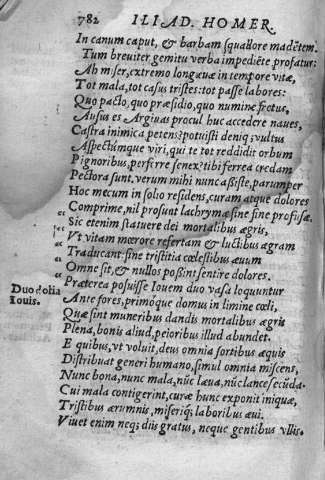 782 ILIAD. HOMER.
In canum caput, & barbam squallore madẽtem.
Tum breuiter gemitu verba impediẽte profatur:
Ah miser, extremo longæuæ in tempore vitæ,
Tot mala, tot casus tristes: tot passe labores:
Quo pacto, quo præsidio, quo numine fretus,
Ausus es Argiuas procul huc accedere naues,
Castra inimica petens? potuisti deniq; vultus
Aspectúmque viri, qui te tot reddidit orbum
Pignoribus, perferre senex? tibi ferrea credam
Pectora sunt, verum mihi nunc assiste, parumper
Hoc mecum in solio residens, curam atque dolores
Comprime, nil prosunt lachrymæ sine fine profusæ.
Sic etenim statuere dei mortalibus ægris,
Vt vitam mœrore refertam & luctibus agram
Traducant: sine tristitia cœlestibus æuum
Omne sit, & nullos possint sentire dolores.
Præterea posuisse Iouem duo vasa loquuntur
Duo dolia
Iouis.
Ante fores, primóque domus in limine cœli,
Quæ sint muneribus dandis mortalibus ægris
Plena, bonis aliud, peioribus illud abundet.
E quibus, vt voluit, deus omnia sortibus æquis
Distribuat generi humano, simul omnia miscens,
Nunc bona, nunc mala, nũc læua, nũc lance secũda.
Cui mala contigerint, curæ hunc exponit iniquæ,
Tristibus ærumnis, miseriq; laboribus æui.
Viuet enim neq; diis gratus, neque gentibus vllis.